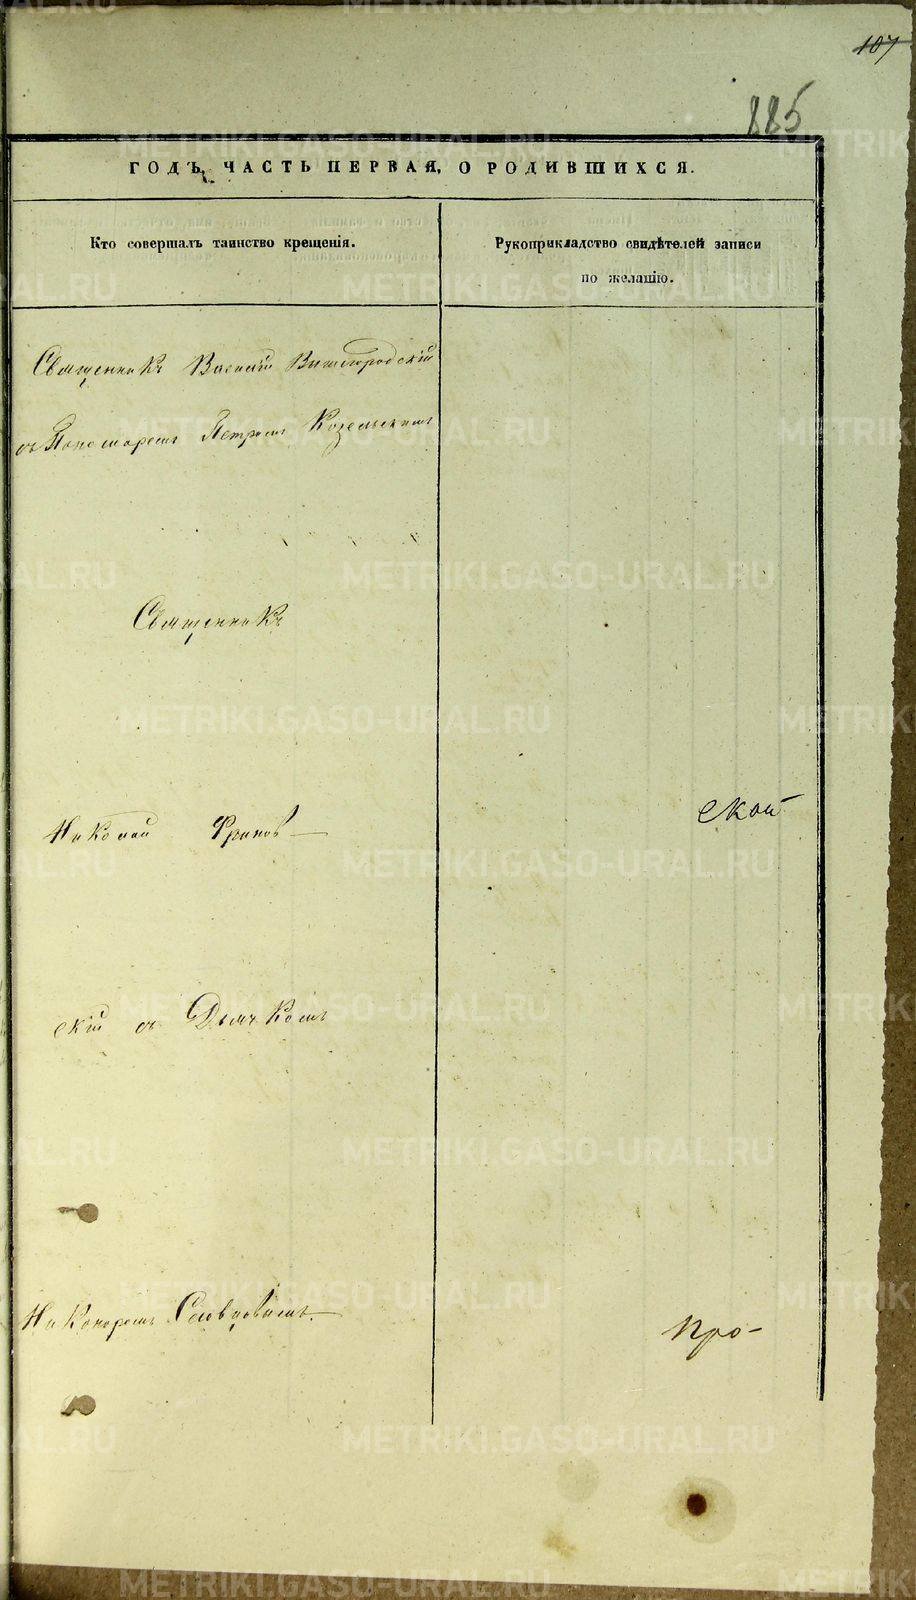 107
885
ГОДЪ, ЧАСТЬ ПЕРВАЯ, О РОДИВШИХСЯ.
Кто совершалъ таинство крещенія.
Рукоприкладство свидѣтелей записи
по желанію.
Священникъ Василій Вышегородскій
съ Пономаремъ Петромъ Козельскимъ
Священникъ
Николай
ской
скій съ Дьячкомъ
Никаноромъ Словцовымъ
про-
METRIKI.GASO-URAL.RU